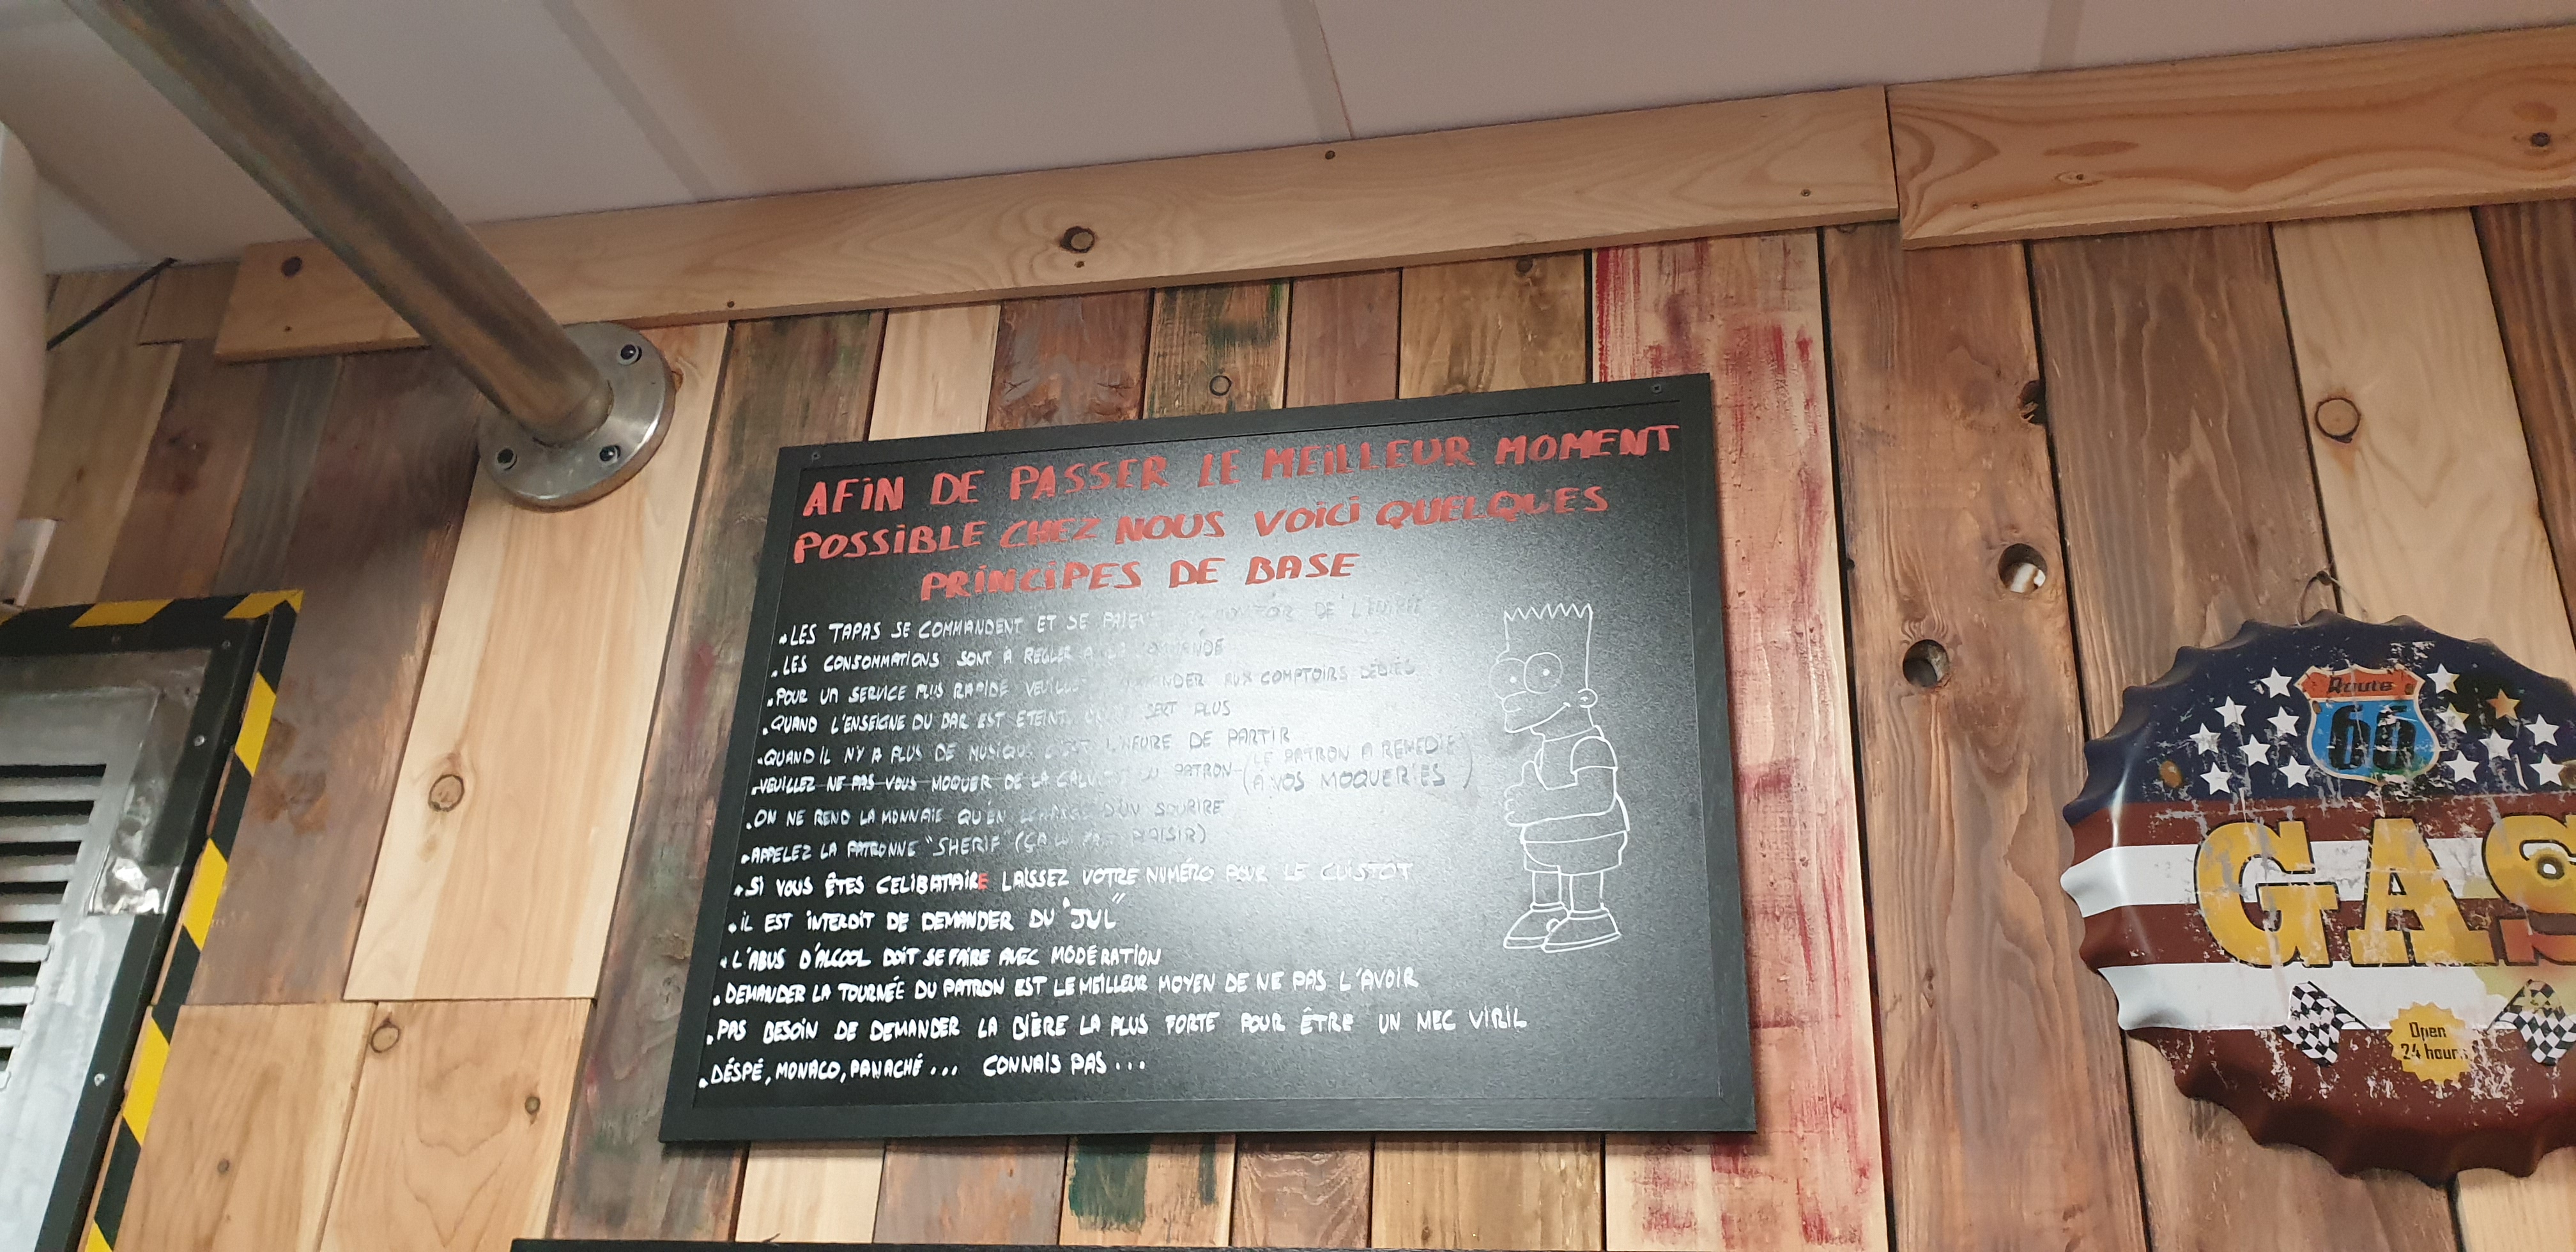 AFIN DE PASSER LE MEILLEUR MOMENT
POSSIBLE CHEZ NOUS VOICI QUELQUES
PRINCIPES DE BASE
.LES TAPAS SE COMMANDENT ET SE PAIENT DE L'ENTRÉE
.LES CONSOMMATIONS SONT A REGLER A LA COMMANDE
.POUR UN SERVICE PLUS RAPIDE VEUILLEZ COMMANDER AUX COMPTOIRS DÉDIÉS
.QUAND L'ENSEIGNE DU BAR EST ETEINT, ON SERT PLUS
.QUAND IL N'Y A PLUS DE MUSIQUE C'EST L'HEURE DE PARTIR
.VEUILLEZ NE PAS VOUS MOQUER DE LA CALVITIE DU PATRON (LE PATRON A REMEDIÉ
À VOS MOQUERIES)
.ON NE REND LA MONNAIE QU'EN D'UN SOURIRE
.APPELEZ LA PATRONNE "SHERIF (ÇA LUI FAIT PLAISIR)
.SI VOUS ÊTES CELIBATAIRE LAISSEZ VOTRE NUMÉRO POUR LE CUISTOT
.IL EST INTERDIT DE DEMANDER DU "JUL"
.L'ABUS D'ALCOOL DOIT SE FAIRE AVEC MODÉRATION
.DEMANDER LA TOURNÉE DU PATRON EST LE MEILLEUR MOYEN DE NE PAS L'AVOIR
.PAS BESOIN DE DEMANDER LA BIÈRE LA PLUS FORTE POUR ÊTRE UN MEC VIRIL
.DÉSPÉ, MONACO, PANACHÉ... CONNAIS PAS...
Route
66
GAS
Open
24 hours